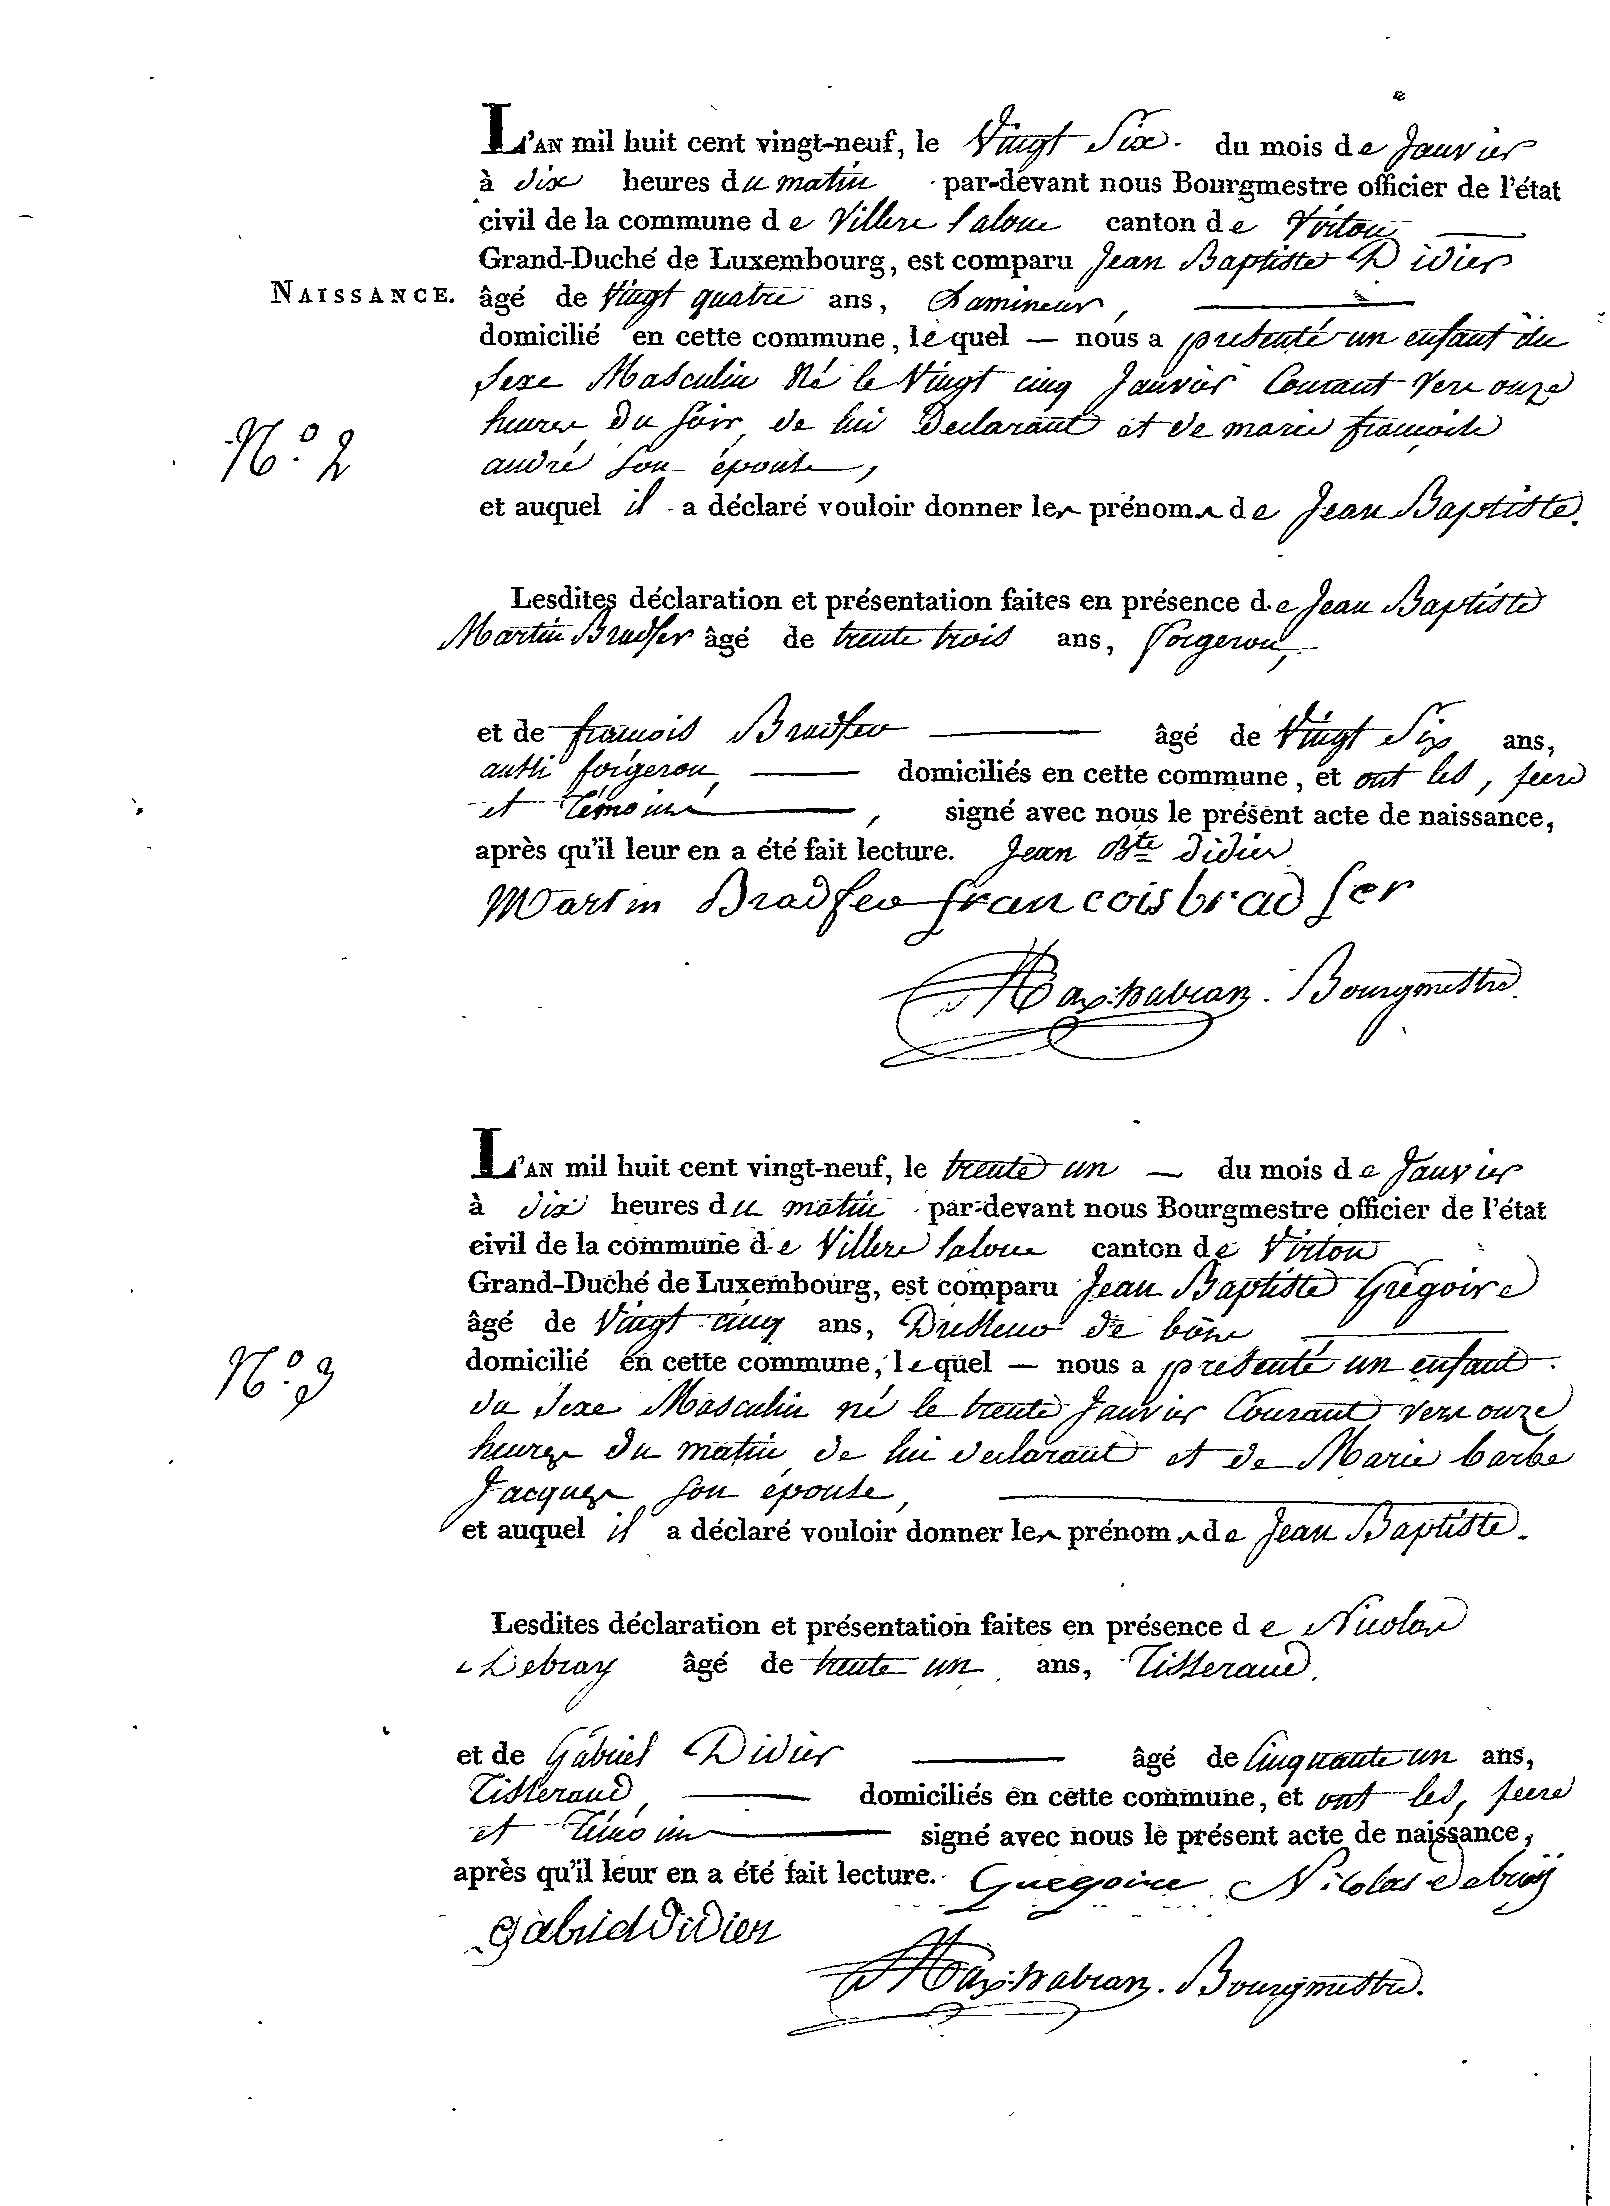 L'AN mil huit cent vingt-neuf, le Vingt Six. du mois de Janvier
à dix heures du matin par-devant nous Bourgmestre officier de l'état
civil de la commune de Villers laloue canton de Virton
Grand-Duché de Luxembourg, est comparu Jean Baptiste Didier
NAISSANCE. âgé de Vingt quatre ans, Lamineur,
domicilié en cette commune, lequel — nous a présenté un enfant du
Sexe Masculin Né le Vingt cinq Janvier Courant Vers onze
N.º 2
heures du soir, de lui Déclarant et de marie françoise
andré son épouse,
et auquel il a déclaré vouloir donner les prénoms de Jean Baptiste.
Lesdites déclaration et présentation faites en présence de Jean Baptiste
Martin Bradfer âgé de trente trois ans, forgeron,
et de françois Bradfer âgé de Vingt Six ans,
aussi forgeron, domiciliés en cette commune, et ont les, pere
et Témoins, signé avec nous le présent acte de naissance,
après qu'il leur en a été fait lecture. Jean Bte didier
Martin Bradfer francois bradfer
Bourgmestre.
L'AN mil huit cent vingt-neuf, le trente un — du mois de Janvier
à dix heures du matin par-devant nous Bourgmestre officier de l'état
civil de la commune de Villers laloue canton de Virton
Grand-Duché de Luxembourg, est comparu Jean Baptiste Grégoire
âgé de Vingt cinq ans, de
N.º 3
domicilié en cette commune, lequel — nous a présenté un enfant
du Sexe Masculin né le trente Janvier Courant vers onze
heures du matin de lui declarant et de Marie barbe
Jacques son épouse,
et auquel il a déclaré vouloir donner les prénoms de Jean Baptiste.
Lesdites déclaration et présentation faites en présence de Nicolas
Debray âgé de trente un ans, Tisserand.
et de Gabriel Didier âgé de Cinquante un ans,
Tisserand, domiciliés en cette commune, et ont les, pere
et Témoins signé avec nous le présent acte de naissance,
après qu'il leur en a été fait lecture. Gregoire Nicolas debraÿ
gabriel didier
Bourgmestre.